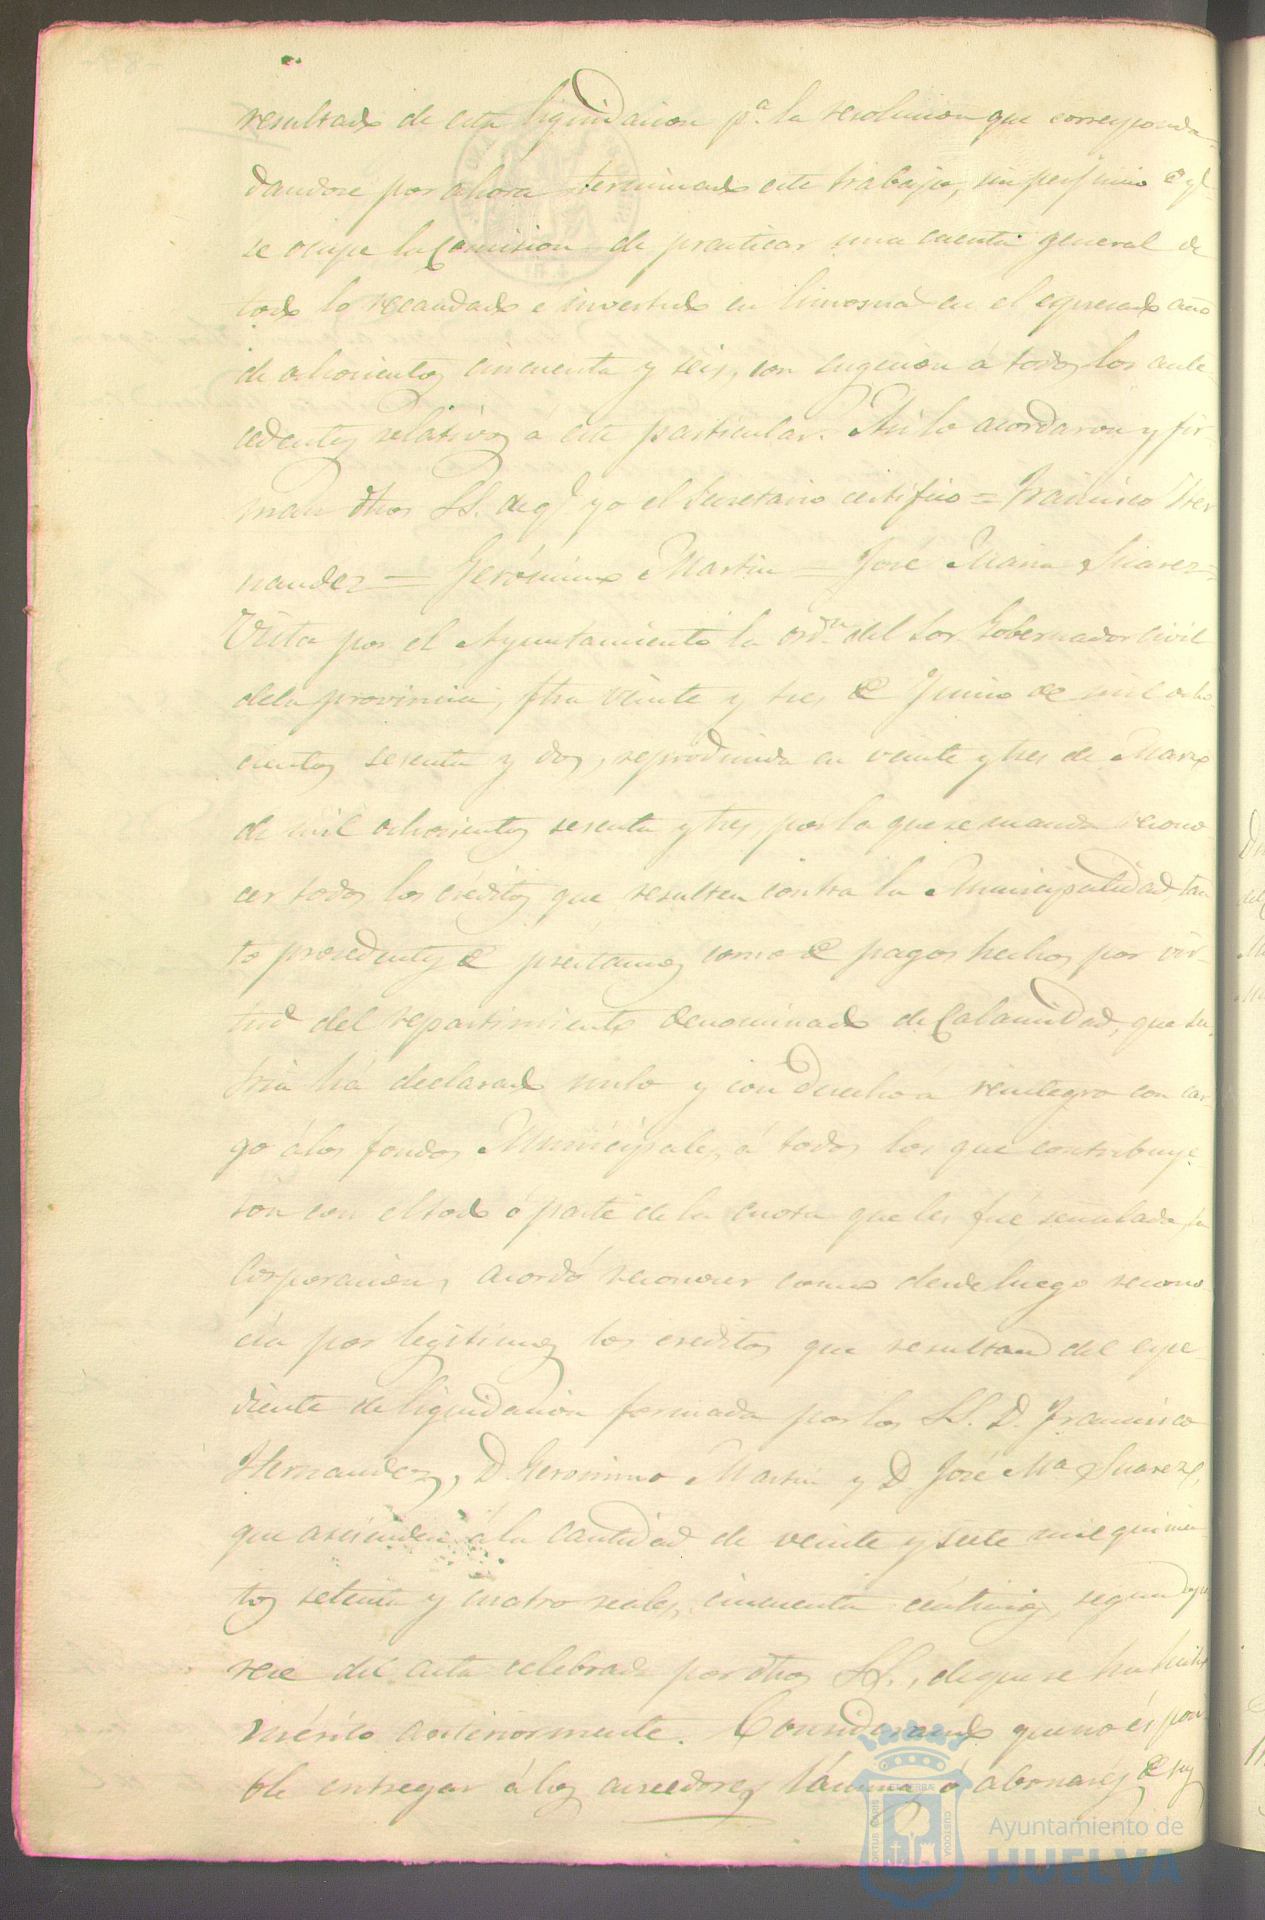 resultado de esta liquidacion p.ª la resolucion que corresponda
dandose por ahora terminado este trabajo, sin perjuicio de q.e
se ocupe la Comision de practicar una cuenta general de
todo lo recaudado e invertido en limosnas en el espresado año
de ochocientos cincuenta y seis, con sugecion á todos los ante
cedentes relativos á este particular. Asi lo acordaron y fir-
man dhos SS. de q.e yo el Secretario certifico = Francisco Her
nandez = Gerónimo Martin = José Maria Suarez =
Vista por el Ayuntamiento la ord.n del Sor Gobernador Civil
dela provincia, fha veinte y tres de Junio de mil ocho
cientos sesenta y dos, reproducida en veinte y tres de Marzo
de mil ochocientos sesenta y tres, por la que se manda recono
cer todos los créditos que resulten contra la Municipalidad, tan
to procedentes de préstamos como de pagos hechos por vir-
tud del repartimiento denominado de Calamidad, que su
Sria há declarado nulo y con derecho á reintegro con car-
go álos fondos Municipales, á todos los que contribuye-
ron con el todo ó parte de la cuota que les fué señalada, la
Corporacion, acordó reconocer como desde luego recono-
cia por legitimos los creditos que resultan del espe-
diente de liquidacion formada por los SS. D. Francisco
Hernandez, D Geronimo Martin y D José M.ª Suarez,
que ascienden á la cantidad de veinte y siete mil quinien
tos setenta y cuatro reales, cincuenta céntimos, segun apa
rece del acta celebrada por dhos SS., de que se ha hecho
mérito anteriormente. Considerando que no és posi
ble entregar á los acreedores láminas ó abonarés de sus
Ayuntamiento de
HUELVA